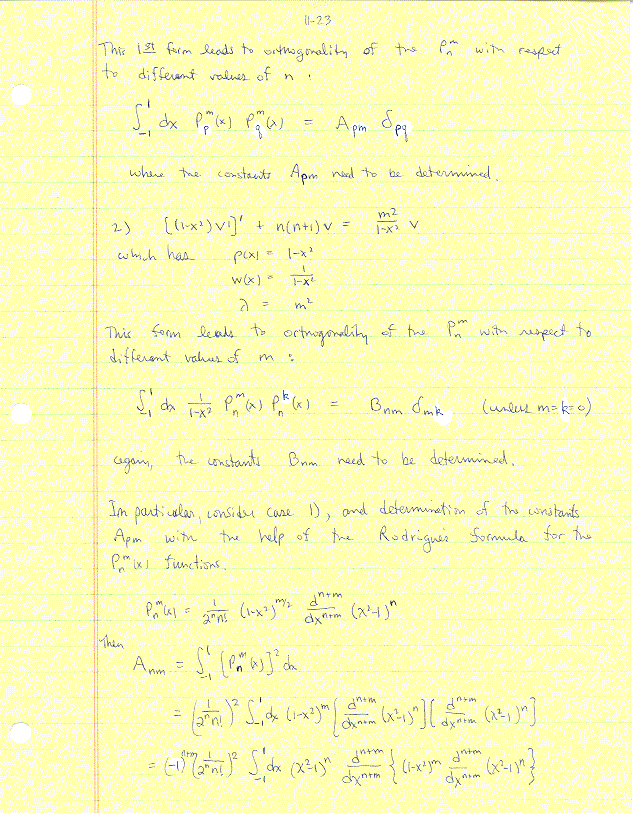 11-23
This 1st form leads to orthogonality of the Pₙᵐ with respect
to different values of n :
∫₋₁¹ dx Pₚᵐ(x) P_qᵐ(x) = Apm δpq
where the constants Apm need to be determined.
2) [(1-x²)v']' + n(n+1)v = m²/(1-x²) v
which has p(x) = 1-x²
w(x) = 1/(1-x²)
λ = m²
This form leads to orthogonality of the Pₙᵐ with respect to
different values of m :
∫₋₁¹ dx 1/(1-x²) Pₙᵐ(x) Pₙᵏ(x) = Bnm δmk (unless m=k=0)
again, the constants Bnm need to be determined.
In particular, consider case 1), and determination of the constants
Apm with the help of the Rodrigues formula for the
Pₙᵐ(x) functions.
Pₙᵐ(x) = 1/(2ⁿn!) (1-x²)^(m/2) d^(n+m)/dx^(n+m) (x²-1)ⁿ
Then
Anm = ∫₋₁¹ [Pₙᵐ(x)]² dx
= (1/(2ⁿn!))² ∫₋₁¹ dx (1-x²)ᵐ [d^(n+m)/dx^(n+m) (x²-1)ⁿ][d^(n+m)/dx^(n+m) (x²-1)ⁿ]
= (-1)^(n+m) (1/(2ⁿn!))² ∫₋₁¹ dx (x²-1)ⁿ d^(n+m)/dx^(n+m) {(1-x²)ᵐ d^(n+m)/dx^(n+m) (x²-1)ⁿ}